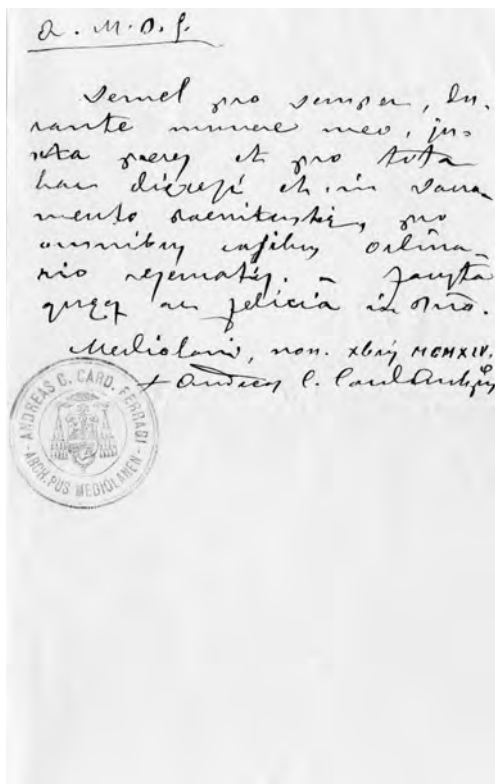 A. M. D. G.
Semel pro semper, du-
rante munere meo, ju-
xta preces et pro tota
hac dioecesi et in Sacra-
mento poenitentiae, pro
omnibus casibus ordina-
rio reservatis. –
quaeq ac felicia in Dno.
Mediolani, non. Xbris MCMXIV.
+ Andreas C. Card.
ANDREAS C. CARD. FERRARI
ARCH.PUS MEDIOLANEN